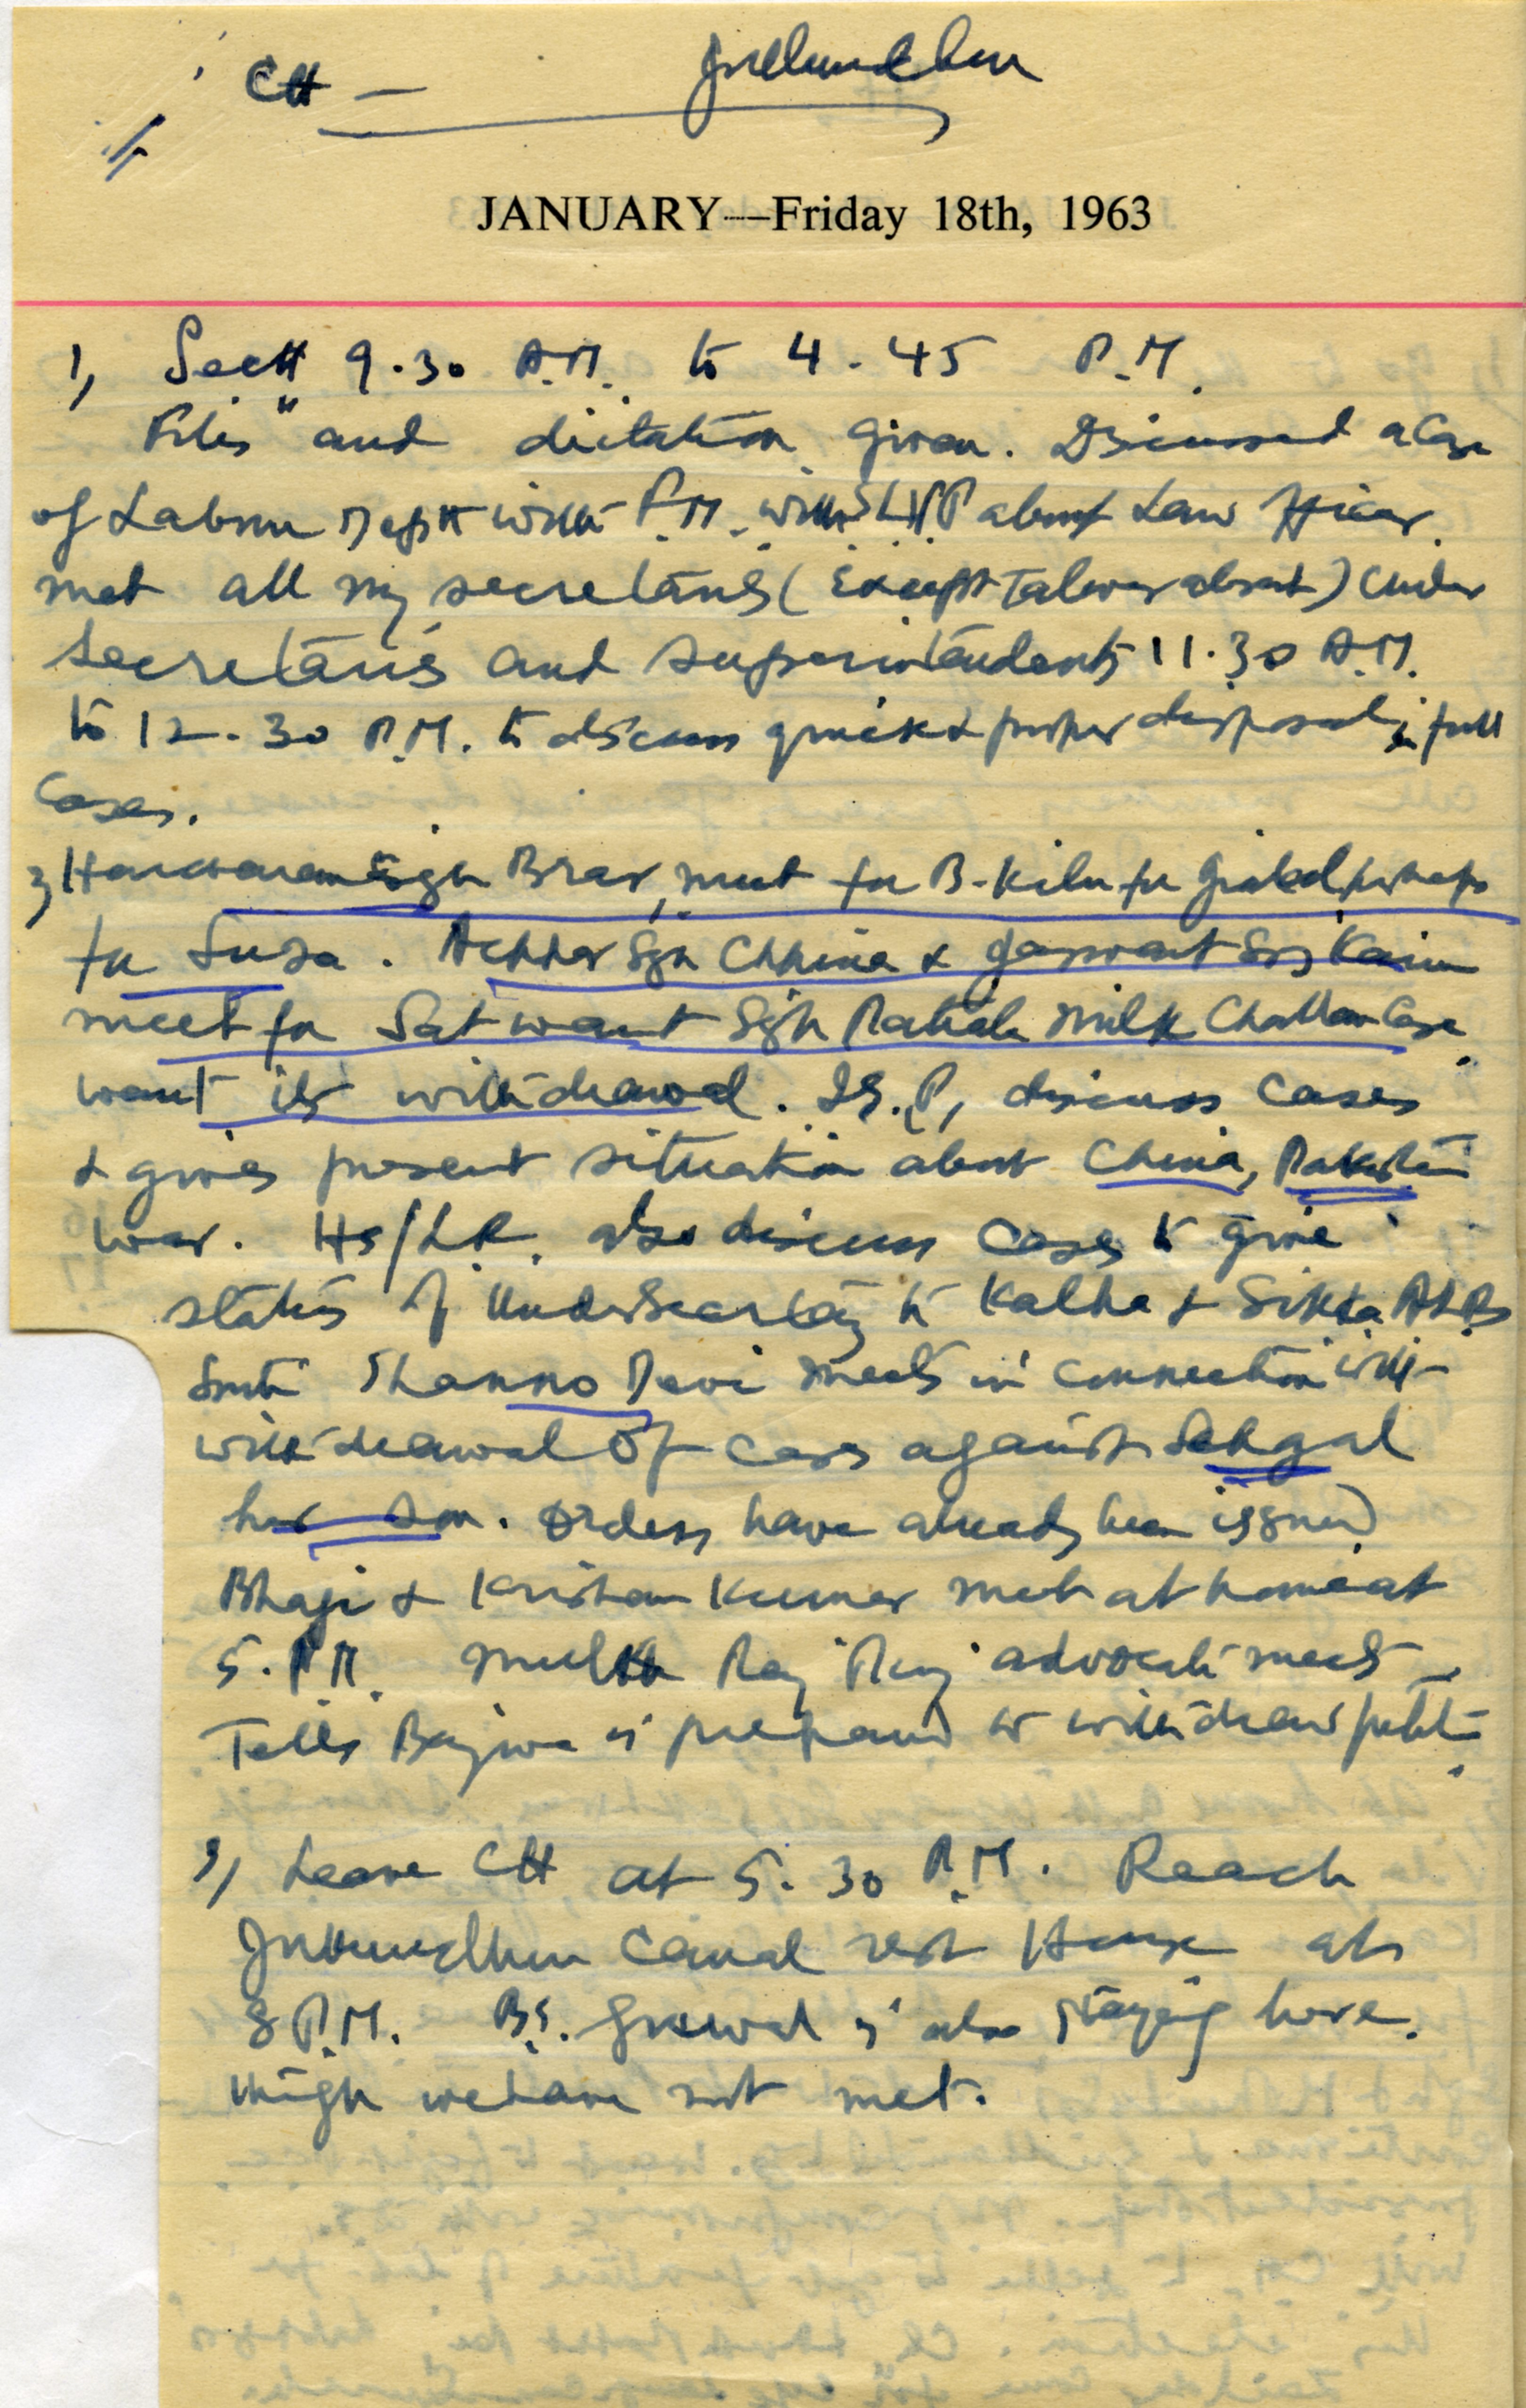 CH — Jullundhur
JANUARY—Friday 18th, 1963
1, Sectt 9.30 A.M. to 4.45 P.M.
Files and dictation given. Discussed a Case
of Labour Deptt with F.M. with about Law Officer.
met all my secretaries (Except Talwar absent) Under
Secretaries and superintendents 11.30 A.M.
to 12.30 P.M. to discuss quick & proper disposal in full
Cases.
Brar, meet for B-Kiln for
for . Achhar Sgh Chhina & Jaswant Sgh
meet for Satwant Sgh milk Challan Case
want its withdrawal. I.G.P, discuss Cases
& gives present situation about China, Pakistan
war. HS/LR. also discuss Cases to give
status of Under Secretary to Kalha &
Smti Shanno Devi meets in connection with
withdrawal of case against Sehgal
her son. Orders have already been issued
Bhaji & Krishan Kumar met at home at
5. P.M. Mulkh Raj advocate meets -
Tells Bajwa is prepared to withdraw petit-
3, Leave CH at 5.30 P.M. Reach
Jullundhur Canal rest House at
8 P.M. B.S. Grewal is also staying here.
though we have not met.